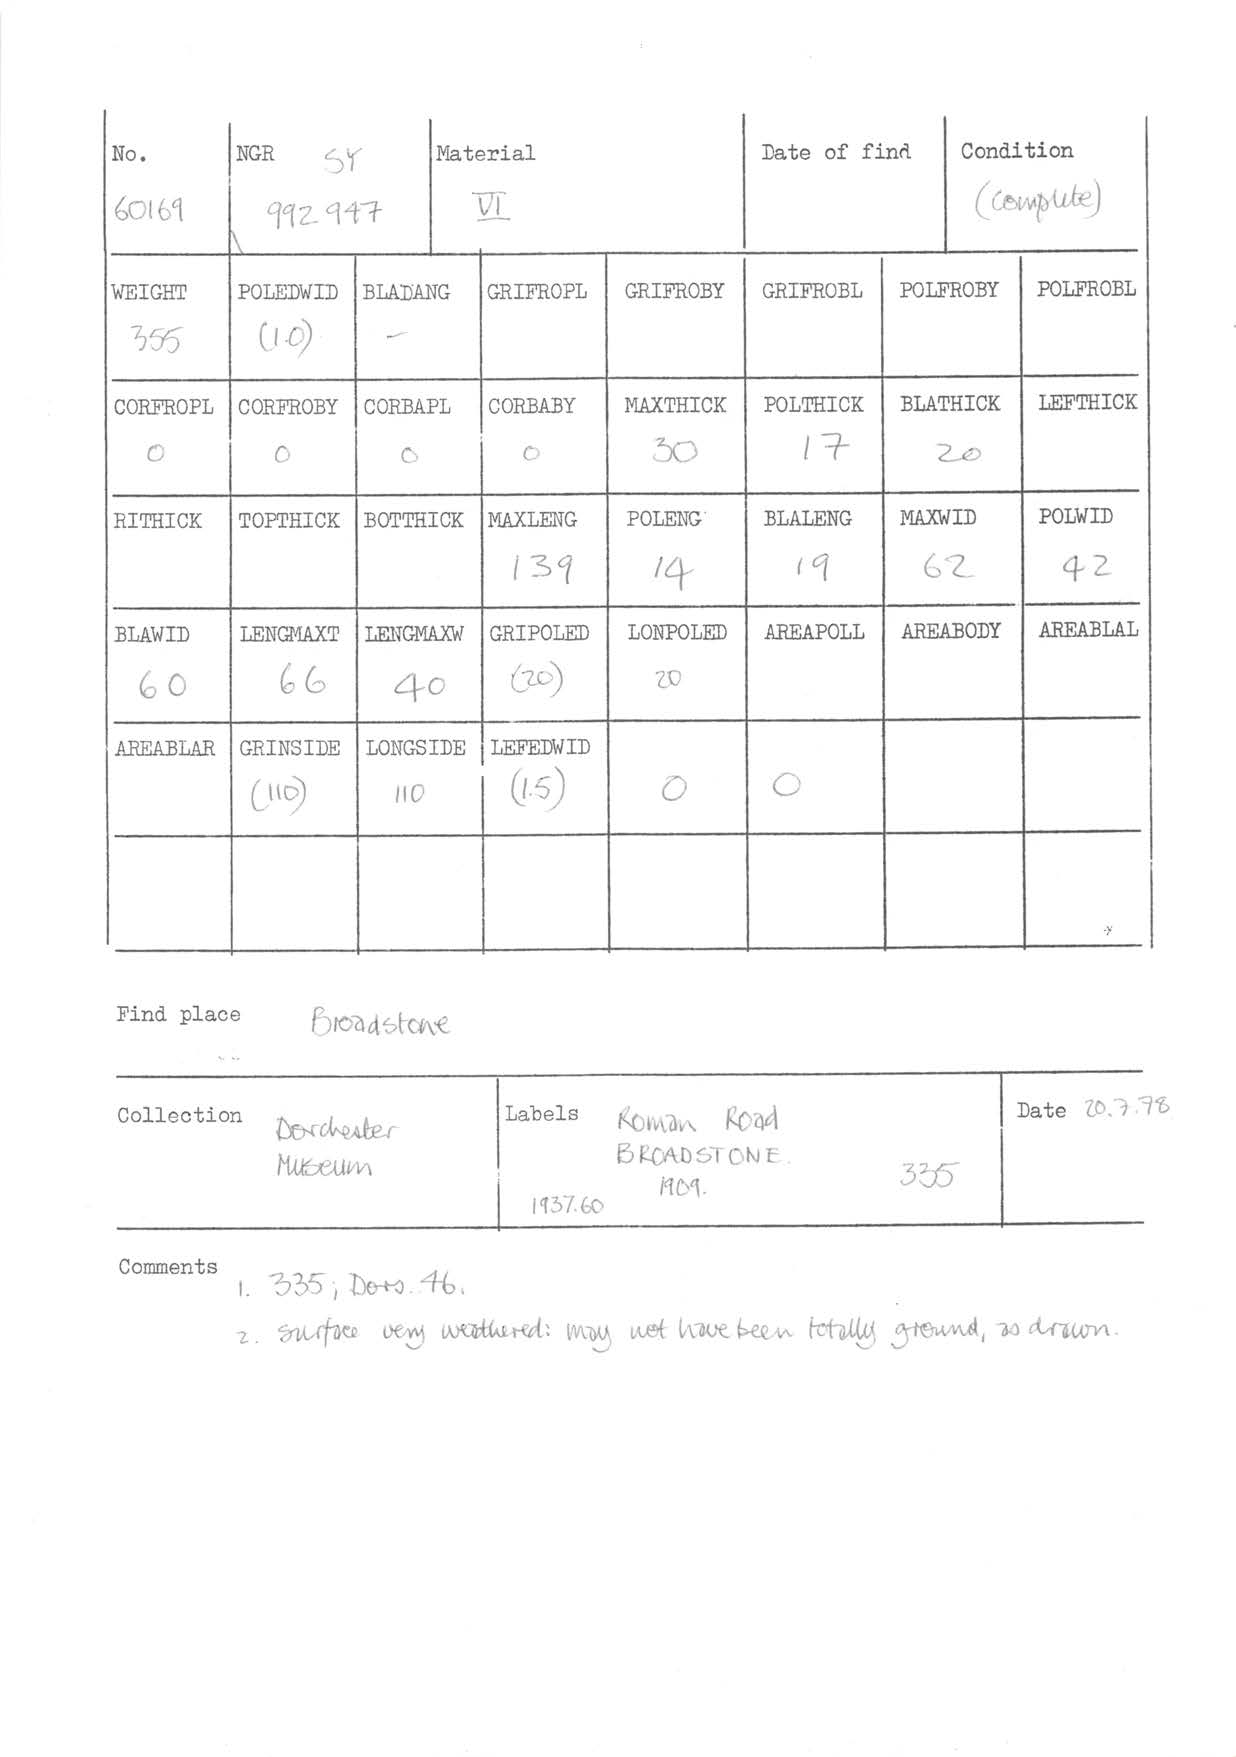 No. NGR SY Material Date of find Condition
60169 992 947 VI (complete)
WEIGHT POLEDWID BLADANG GRIFROPL GRIFROBY GRIFROBL POLFROBY POLFROBL
355 (1.0) -
CORFROPL CORFROBY CORBAPL CORBABY MAXTHICK POLTHICK BLATHICK LEFTHICK
0 0 0 0 30 17 20
RITHICK TOPTHICK BOTTHICK MAXLENG POLENG BLALENG MAXWID POLWID
139 14 19 62 42
BLAWID LENGMAXT LENGMAXW GRIPOLED LONPOLED AREAPOLL AREABODY AREABLAL
60 66 40 (20) 20
AREABLAR GRINSIDE LONGSIDE LEFEDWID
(110) 110 (1.5) 0 0
Find place Broadstone
Collection Dorchester Museum
Labels Roman Road
BROADSTONE.
1909. 335
1937.60
Date 20.7.78
Comments
1. 335; Dors. 46.
2. surface very weathered: may not have been totally ground, as drawn.